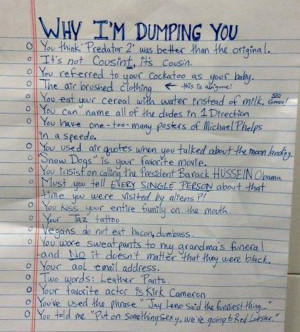 WHY I'M DUMPING YOU
You think 'Predator 2' was better than the original.
It's not CousinI, it's cousin.
You referred to your cockatoo as your baby.
The air brushed clothing ← this is a biggie!
You eat your cereal with water instead of milk.
You can name all of the dudes in 1 Direction
You have one-too-many posters of Michael Phelps
in a speedo.
You used air quotes when you talked about the moon landing.
"Snow Dogs" is your favorite movie.
You insist on calling the President Barack HUSSEIN Obama
Must you tell EVERY SINGLE PERSON about that
time you were visited by aliens?!
You kiss your entire family on the mouth
Your Taz tattoo
Vegans do not eat bacon, dumbass.
You wore sweatpants to my grandma's funeral
and NO it doesn't matter that they were black.
Your aol email address.
Two words: Leather Pants
Your favorite actor is Kirk Cameron
You've used the phrase "Jay Leno said the funniest thing..."
You told me "Put on something sexy, we're going to Red Lobster."